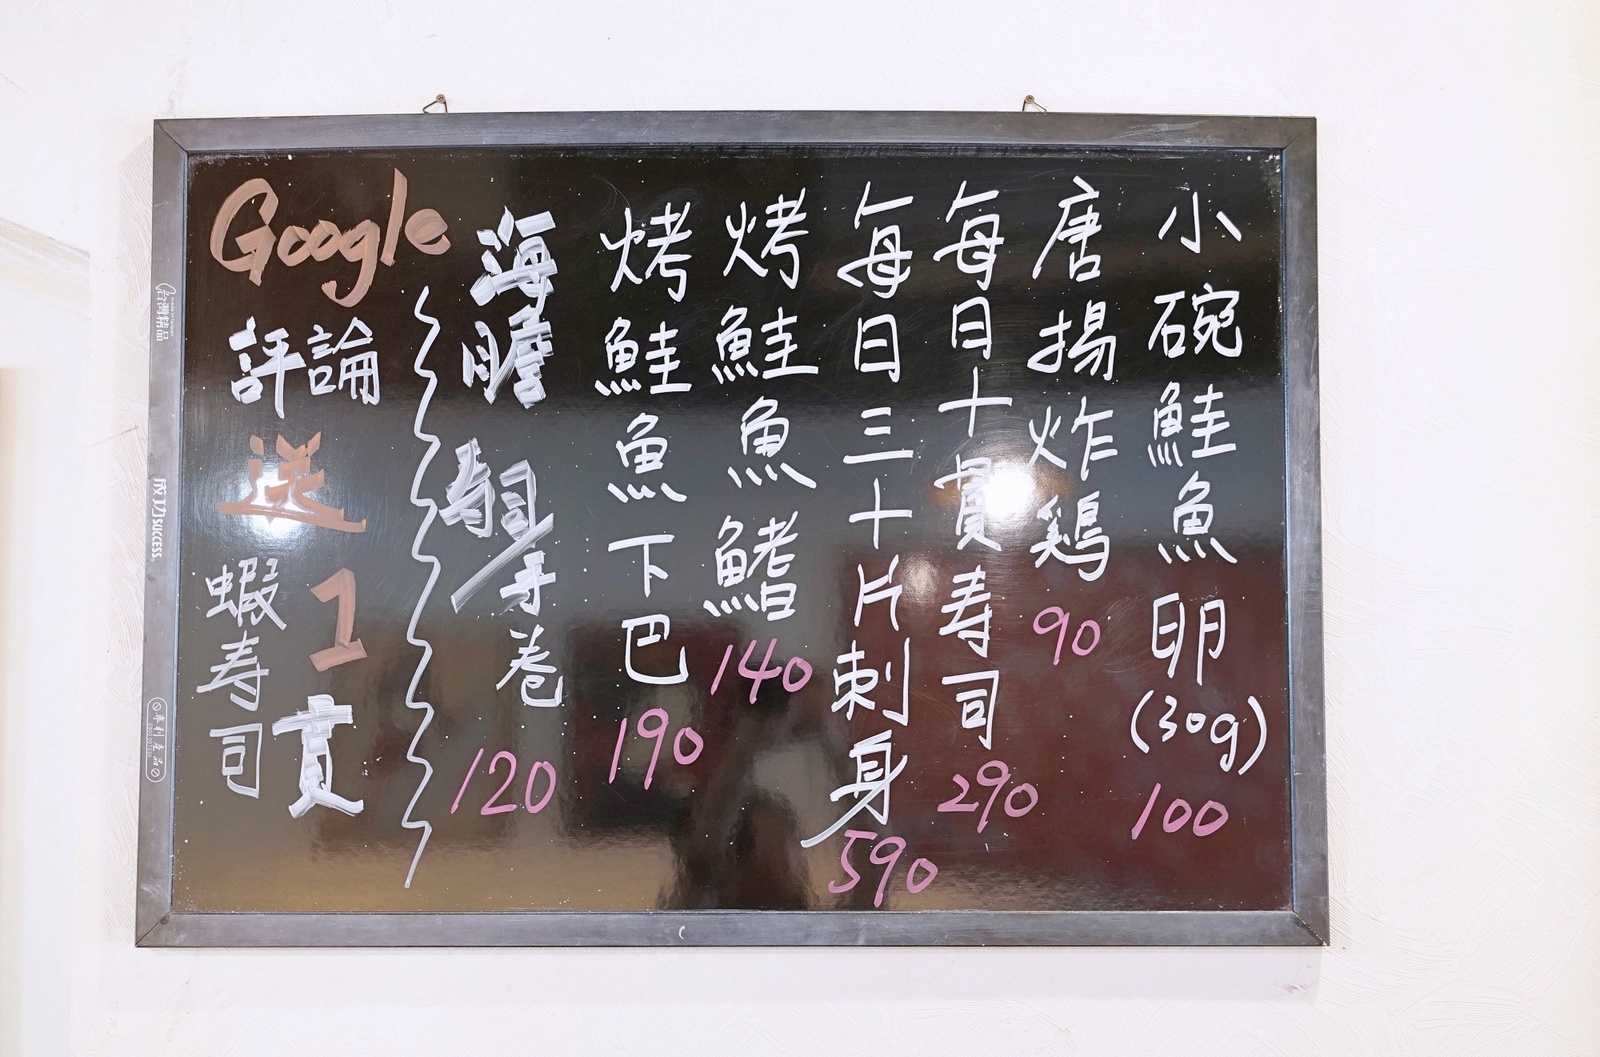 小碗鮭魚卵(30g) 100
唐揚炸鷄 90
每日十貫寿司 290
每日三十片刺身 590
烤鮭魚鰭 140
烤鮭魚下巴 190
海膽
手卷 120
Google
評論
送1貫
蝦寿司
台灣精品
成功 SUCCESS
專利產品